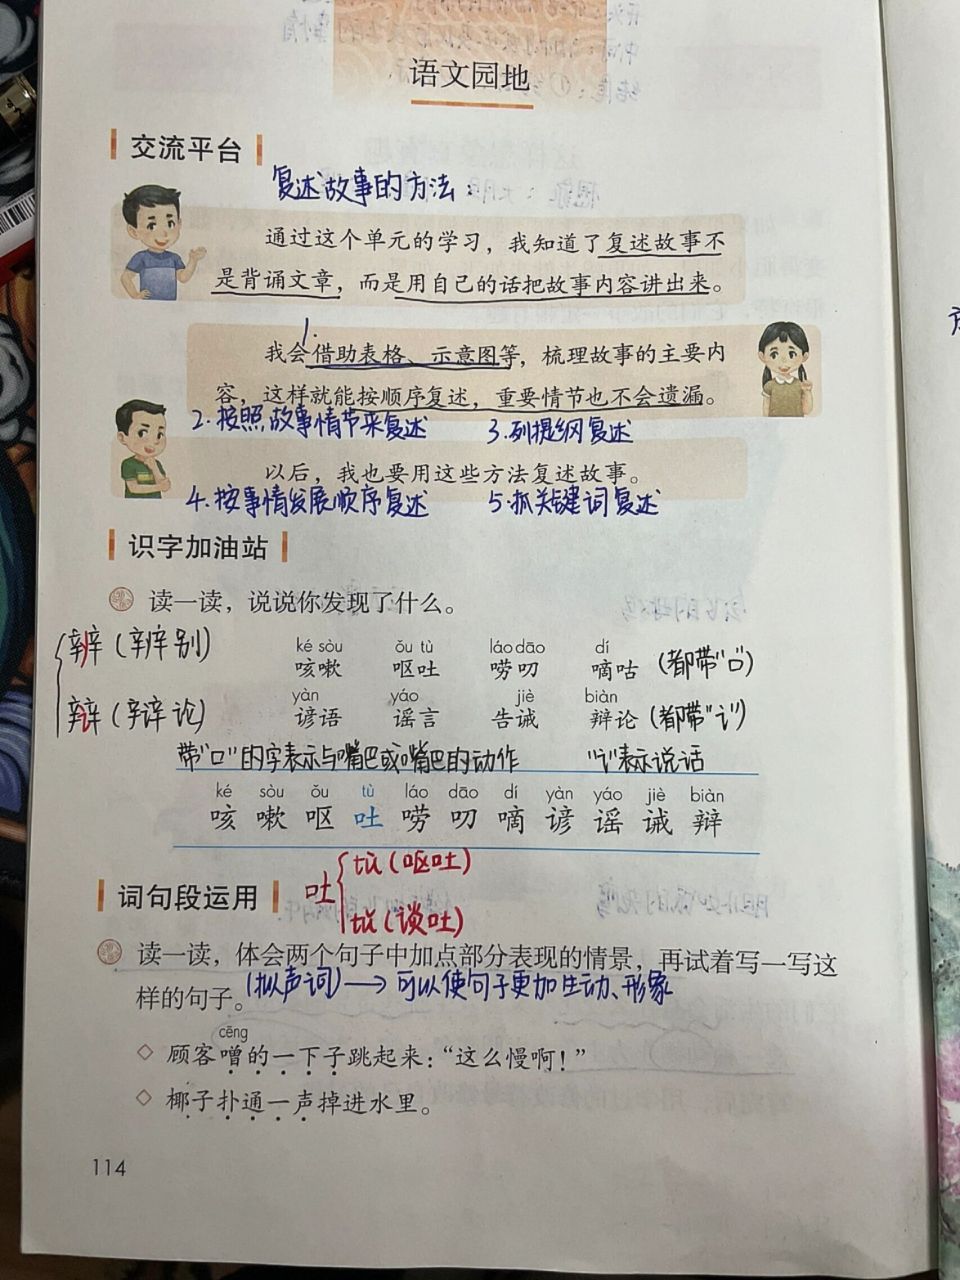 语文园地
交流平台
复述故事的方法：
通过这个单元的学习，我知道了复述故事不
是背诵文章，而是用自己的话把故事内容讲出来。
1.
我会借助表格、示意图等，梳理故事的主要内
容，这样就能按顺序复述，重要情节也不会遗漏。
2.按照故事情节来复述 3.列提纲复述
以后，我也要用这些方法复述故事。
4.按事情发展顺序复述 5.抓关键词复述
识字加油站
读一读，说说你发现了什么。
辨（辨别）
ké sòu ǒu tù láo dāo dí
咳嗽 呕吐 唠叨 嘀咕（都带“口”）
辩（辩论）
yàn yáo jiè biàn
谚语 谣言 告诫 辩论（都带“讠”）
带“口”的字表示与嘴巴或嘴巴的动作 “讠”表示说话
ké sòu ǒu tù láo dāo dí yàn yáo jiè biàn
咳 嗽 呕 吐 唠 叨 嘀 谚 谣 诫 辩
词句段运用
吐 tù（呕吐）
tǔ（谈吐）
读一读，体会两个句子中加点部分表现的情景，再试着写一写这
样的句子。（拟声词）→可以使句子更加生动、形象
cēng
顾客噌的一下子跳起来：“这么慢啊！”
椰子扑通一声掉进水里。
114